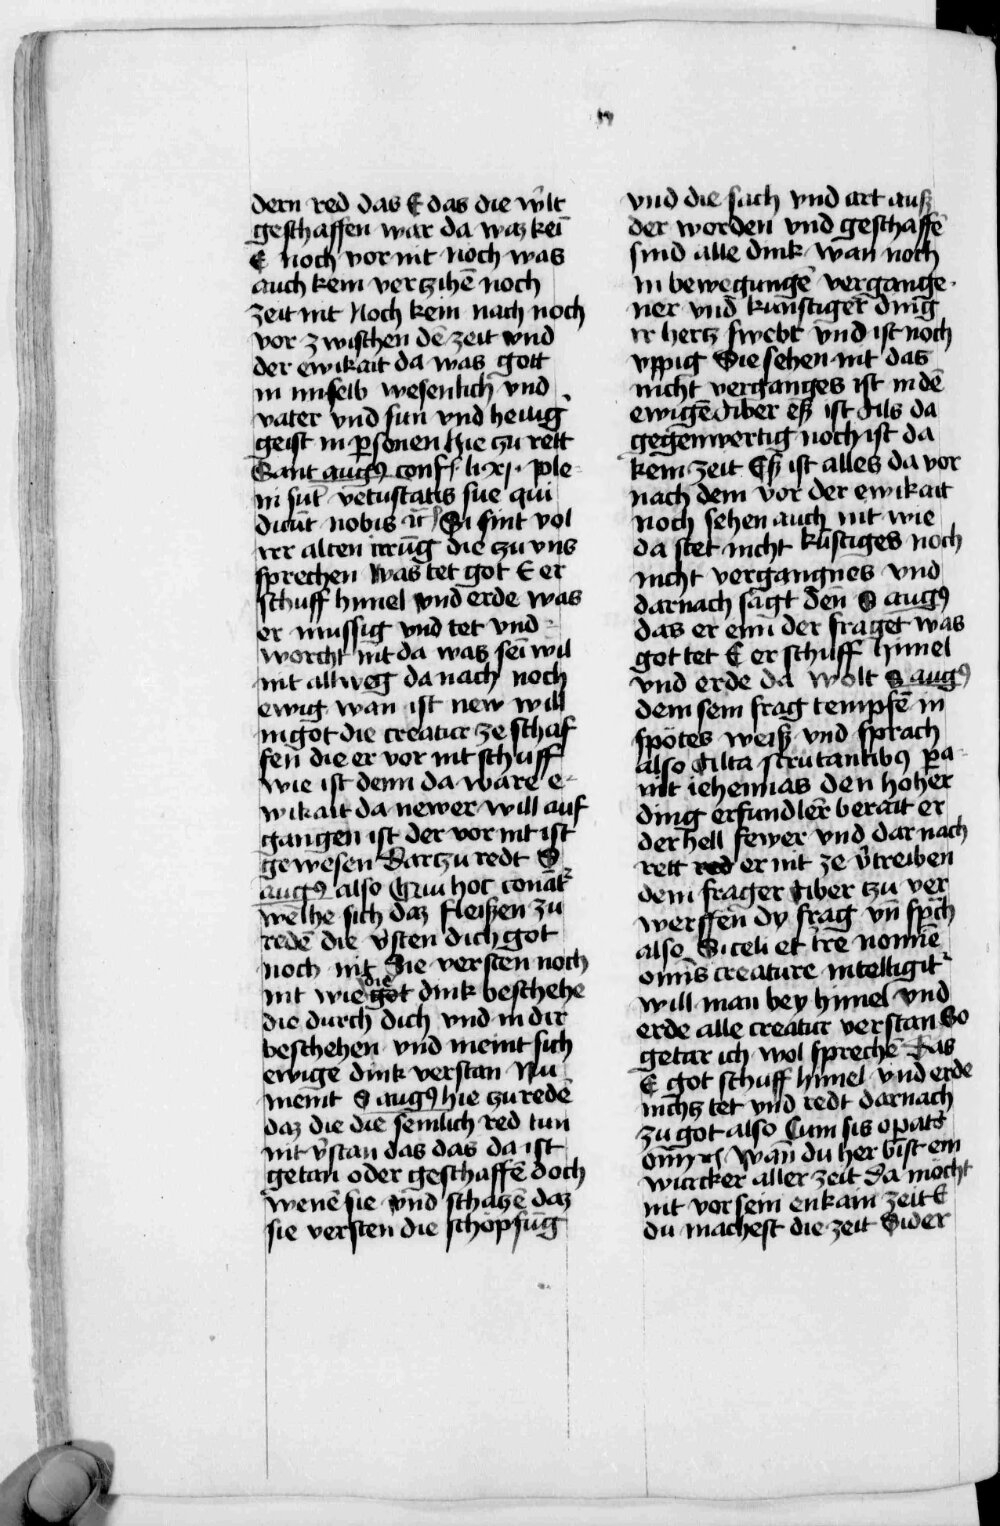 dern red das E das die wˢlt
geschaffen war da waz kei̅
E noch vor nit noch was
auch kein vertzihe̅ noch
zeit nit Noch kein nach noch
vor zwischen de̅ zeit vnd
der ewikait da was gott
in im selb wesenlich vnd
vater vnd sun vnd heilig
geist in p̲sonen hie zu rett
Sant augꝰ conf li xi ple-
ni su̅t vetustatis sue qui
dicu̅t nobis Si sint vol
irr alten irru̅g die tzu vns
sprechen was tet got E er
schuff himel vnd erde was
er mussig vnd tet vnd
worcht nit da was sei̅ wil
nit allweg da nach noch
ewig wan ist new will
in got die creatur ze schaf
fen die er vor nit schuff
wie ist denn da ware e-
wikait da newer will auf
gangen ist der vor nit ist
gewesen Dartzu redt S
augꝰ also Qui hoc
welhe sich daz fleißen zu
rede̅ die vˢsten dich got
noch nit Sie versten noch
nit wie die got dink beschehe
die durch dich vnd in dir
beschehen vnd meint sich
ewige dink verstan Nu
meint S augꝰ hie tzu rede̅
daz die die semlich red tun
nit vˢstan das das da ist
getan oder geschaffe̅ doch
wene̅ sie vnd schatze̅ daz
sie versten die schopfu̅g
vnd die sach vnd art auß
der worden vnd geschaffe̅
sind alle dink wan noch
in bewegunge̅ vergange-
ner vnd kunftiger ding
ir hertz swebt vnd ist noch
vppig Sie sehen nit das
nicht verganges ist in de̅
ewige̅ Aber eß ist Als da
gegenwertig noch ist da
kein zeit Eß ist alles da vor
nach dem vor der ewikait
noch sehen auch nit wie
da stet nicht ku̅ftiges noch
nicht vergangnes vnd
darnach sagt den S augꝰ
das er eim der fraget was
got tet E er schuff himel
vnd erde da wolt S augꝰ
dem sein frag tempfe̅ in
spötes weiß vnd sprach
also Alta scrutantibꝰ p̲a-
uit iehennas den hoher
ding erfundler berait er
der hell fewer vnd dar nach
rett red er nit ze vˢtreiben
dem frager Aber tzu ver
werffen dy frag vn̅ sp̅ch
also Si celi et tˢre nomi̅e
om̅is creature intelligitˢ
will man bey himel vnd
erde alle creatur verstan So
getar ich wol spreche̅ Das
E got schuff himel vnd erde
nichtz tet vnd redt darnach
zu got also Cum sis opatˢ
wan̅ du her bist ein
wurcker aller zeit da möcht
nit vor sein enkain zeit E
du machest die zeit Sider